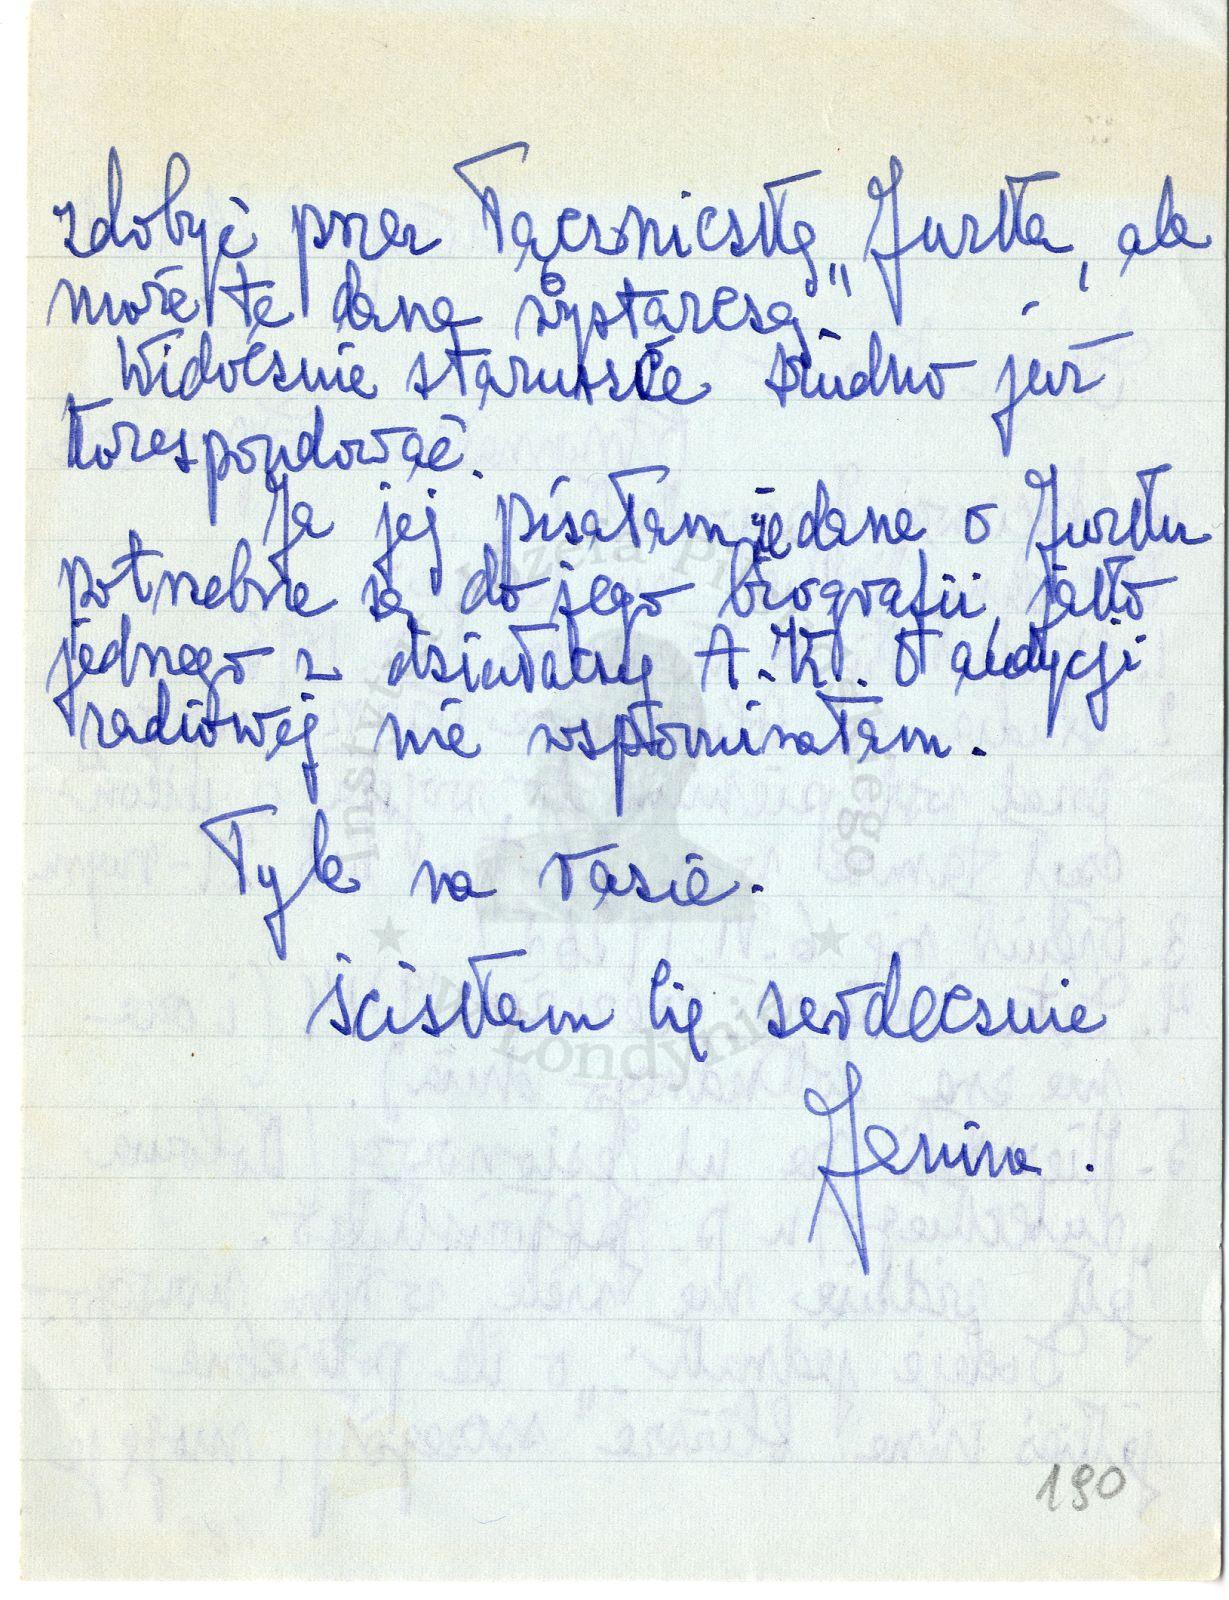 zdobyć przez łączniczkę „Jurka", ale
może te dane wystarczą.
Widocznie staruszce trudno już
korespondować.
Ja jej pisałam, że dane o Jurku
potrzebne są do jego biografii, jako
jednego z działaczy A.K. O audycji
radiowej nie wspominałam.
Tyle na razie.
Ściskam Cię serdecznie
Janina.
190
Instytut Józefa Piłsudskiego
w Londynie